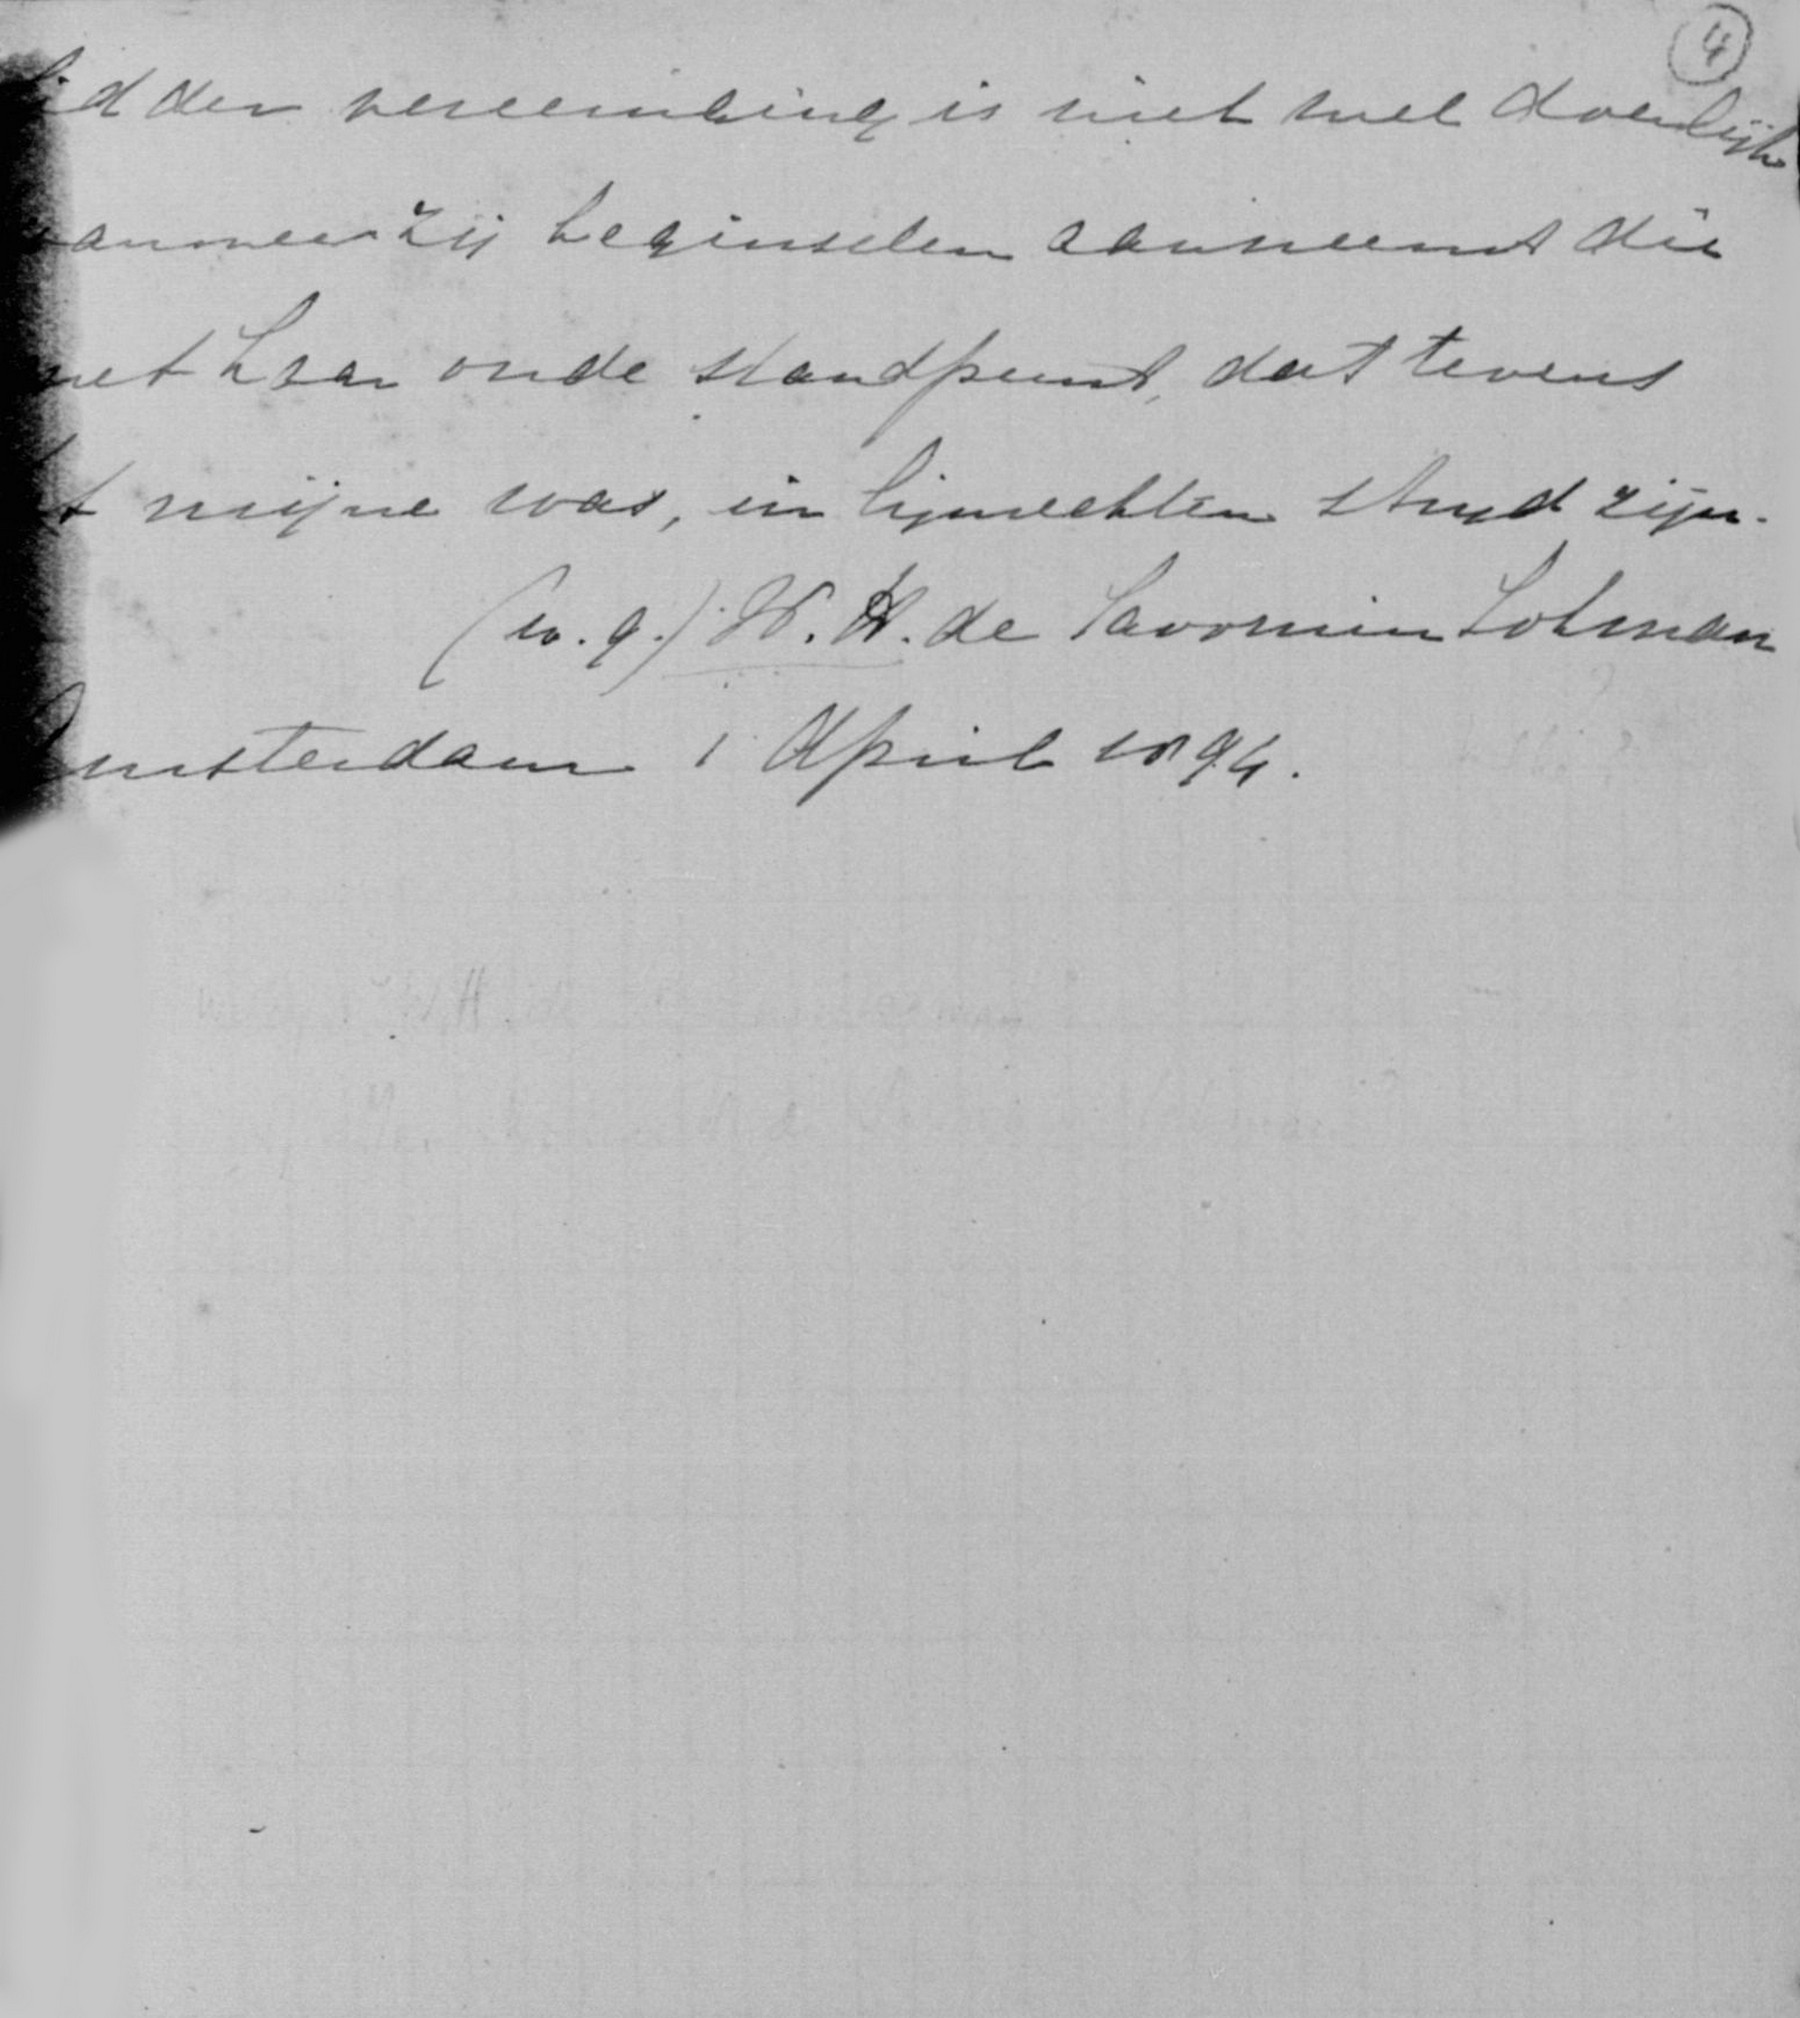 4
lid der vereeniging is niet wel doenlijk
wanneer zij beginselen aanneemt die
met haar oude standpunt, dat tevens
het mijne was, in lijnrechten strijd zijn.
(w.g.) W. H. de Savornin Lohman
Amsterdam 1 April 1894.